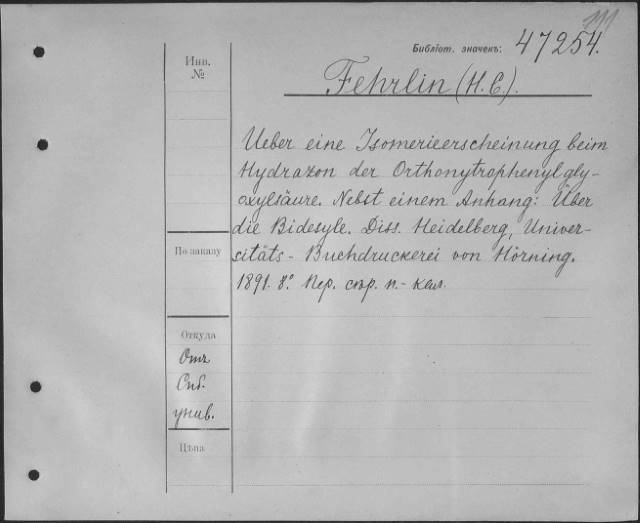 111
Библіот. значекъ: 47254.
Инв.
№
Fehrlin (H. C.).
Ueber eine Isomerieerscheinung beim
Hydrazon der Orthonytrophenylgly-
oxylsäure. Nebst einem Anhang: Über
die Bidesyle. Diss. Heidelberg, Univer-
sitäts - Buchdruckerei von Hörning.
1891. 8°. Пер. стр. п. - кал.
По заказу
Откуда
Отъ
Спб.
унив.
Цѣна